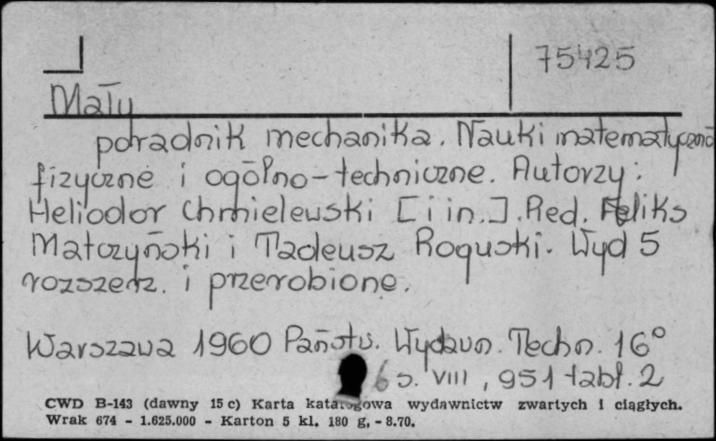 75425
Mały
poradnik mechanika. Nauki matematyczno
fizyczne i ogólno-techniczne. Autorzy:
Heliodor Chmielewski [i in.]. Red. Feliks
Matczyński i Tadeusz Roguski. Wyd 5
rozszerz. i przerobione.
Warszawa 1960 Państw. Wydawn. Techn. 16°
s. VIII, 951 tabl. 2
CWD B-143 (dawny 15 c) Karta katalogowa wydawnictw zwartych i ciągłych.
Wrak 674 - 1.625.000 - Karton 5 kl. 180 g. - 8.70.